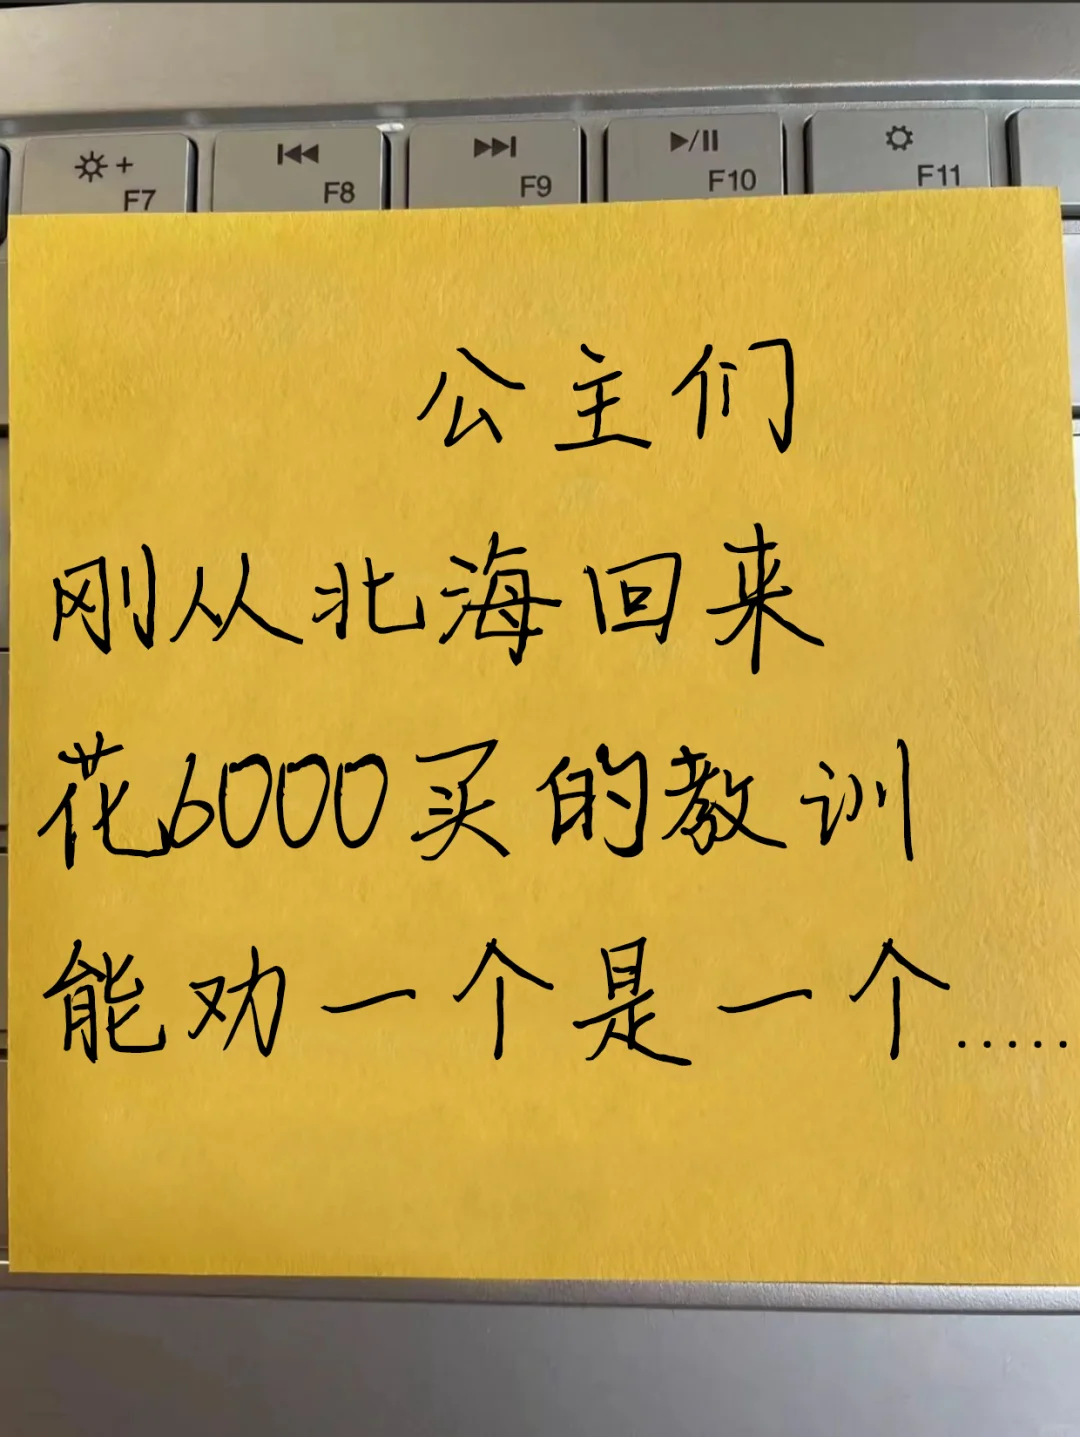 +
F7
F8
F9
F10
F11
公主们
刚从北海回来
花6000买的教训
能劝一个是一个.....